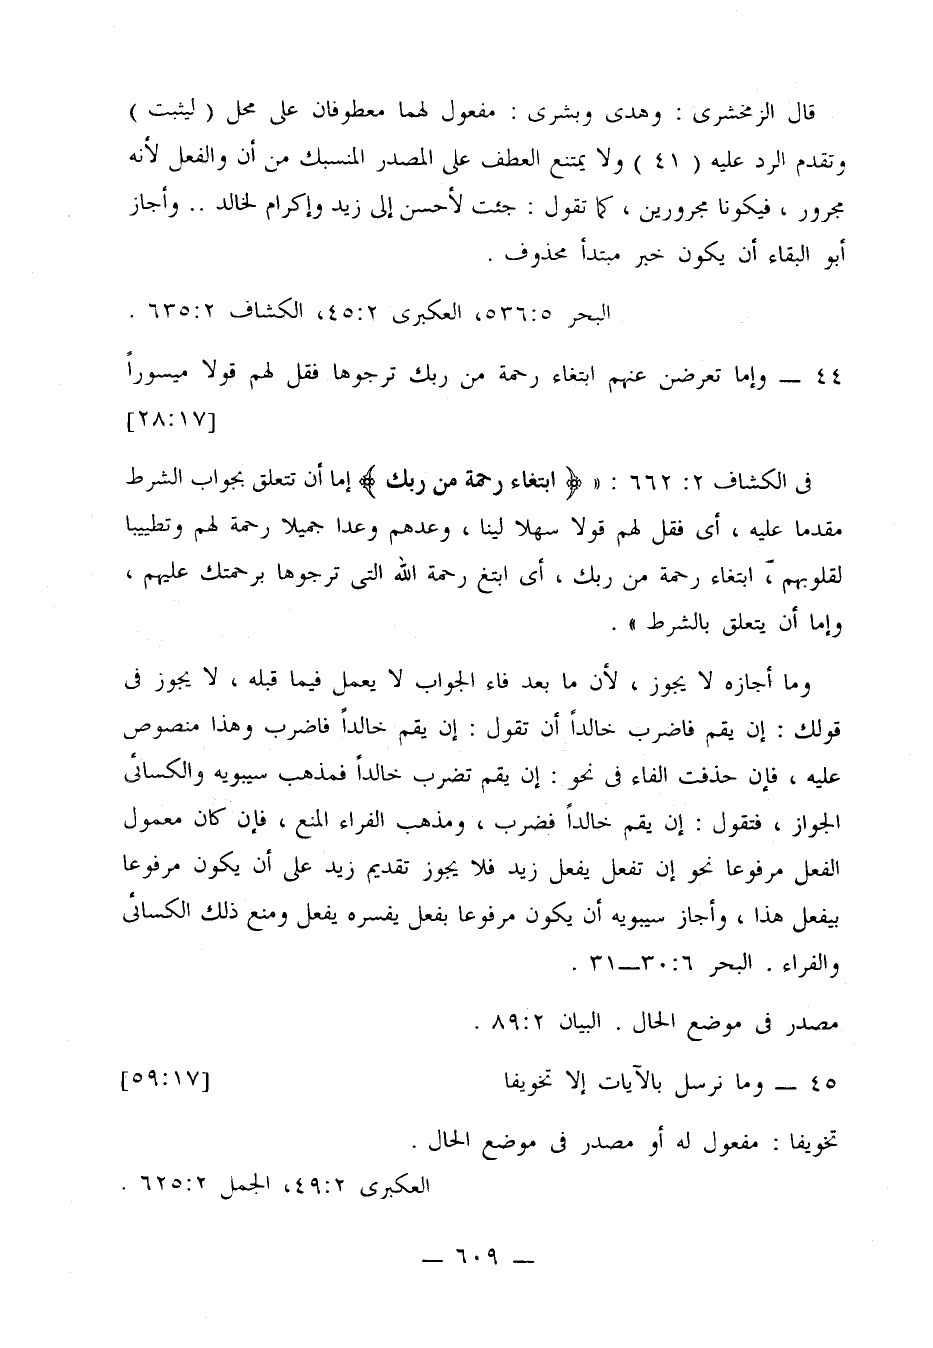 قال الزمخشرى : وهدى وبشرى : مفعول لهما معطوفان على محل ( ليثبت )
وتقدم الرد عليه ( ٤١ ) ولا يمتنع العطف على المصدر المنسبك من أن والفعل لأنه
مجرور ، فيكونا مجرورين ، كما تقول : جئت لأحسن إلى زيد وإكرام لخالد .. وأجاز
أبو البقاء أن يكون خبر مبتدأ محذوف .
البحر ٥:٥٣٦، العكبرى ٢:٤٥، الكشاف ٢:٦٣٥ .
٤٤ — وإما تعرضن عنهم ابتغاء رحمة من ربك ترجوها فقل لهم قولا ميسوراً
[٢٨:١٧]
فى الكشاف ٢: ٦٦٢ : « ﴿ ابتغاء رحمة من ربك ﴾ إما أن تتعلق بجواب الشرط
مقدما عليه ، أى فقل لهم قولا سهلا لينا ، وعدهم وعدا جميلا رحمة لهم وتطييبا
لقلوبهم ، ابتغاء رحمة من ربك ، أى ابتغ رحمة الله التى ترجوها برحمتك عليهم ،
وإما أن يتعلق بالشرط » .
وما أجازه لا يجوز ، لأن ما بعد فاء الجواب لا يعمل فيما قبله ، لا يجوز فى
قولك : إن يقم فاضرب خالداً أن تقول : إن يقم خالداً فاضرب وهذا منصوص
عليه ، فإن حذفت الفاء فى نحو : إن يقم تضرب خالداً فمذهب سيبويه والكسائى
الجواز ، فتقول : إن يقم خالداً فضرب ، ومذهب الفراء المنع ، فإن كان معمول
الفعل مرفوعا نحو إن تفعل يفعل زيد فلا يجوز تقديم زيد على أن يكون مرفوعا
بيفعل هذا ، وأجاز سيبويه أن يكون مرفوعا بفعل يفسره يفعل ومنع ذلك الكسائى
والفراء . البحر ٦:٣٠—٣١ .
مصدر فى موضع الحال . البيان ٢:٨٩ .
٤٥ — وما نرسل بالآيات إلا تخويفا [٥٩:١٧]
تخويفا : مفعول له أو مصدر فى موضع الحال .
العكبرى ٢:٤٩، الجمل ٢:٦٢٥ .
— ٦٠٩ —